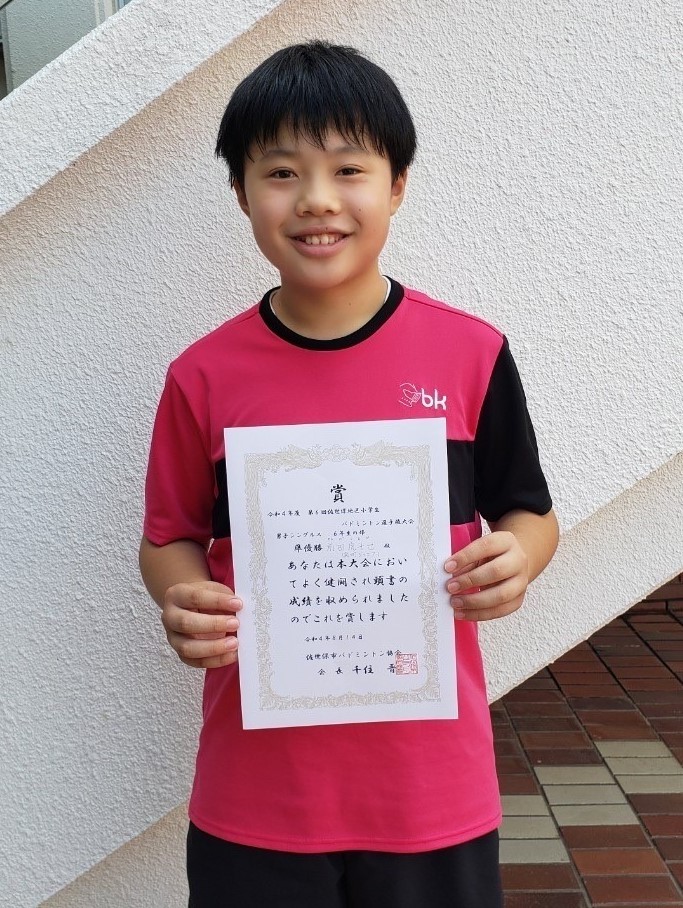 bk
賞
令和4年度 第6回佐世保地区小学生
バドミントン選手権大会
男子シングルス 6年生の部
準優勝 殿
あなたは本大会におい
てよく健闘され頭書の
成績を収められました
のでこれを賞します
令和4年8月14日
佐世保市バドミントン協会
会長 千住